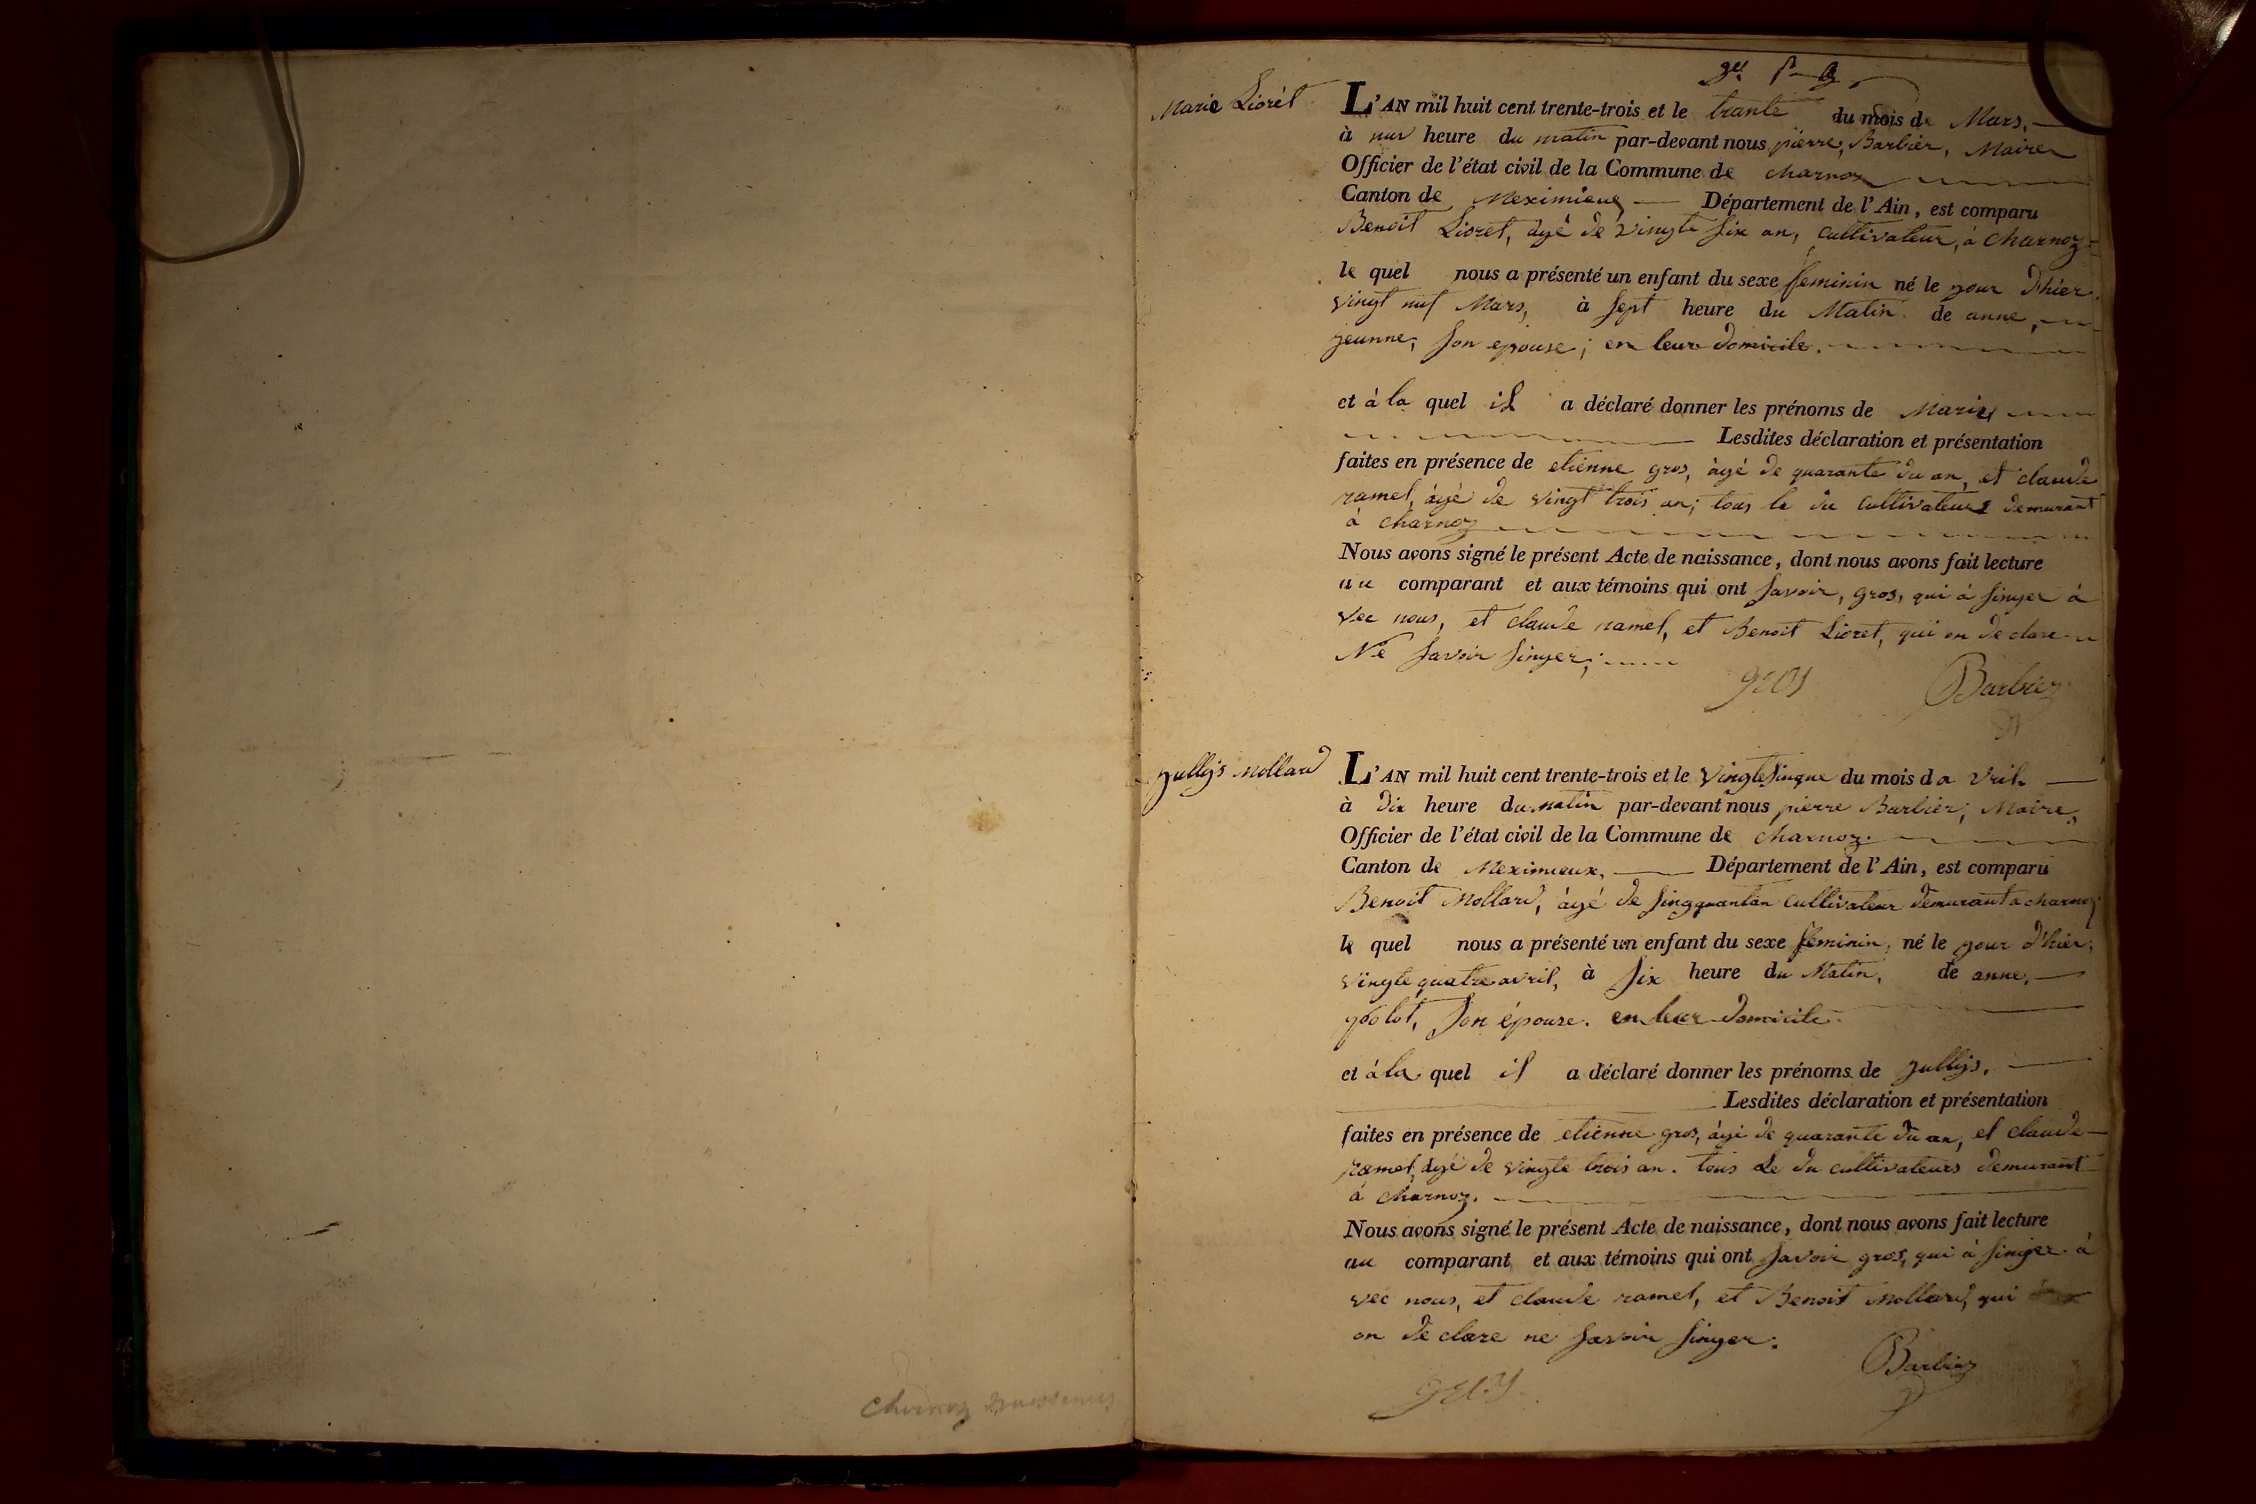 Marie Lioret
L'AN mil huit cent trente-trois et le trante du mois de Mars,
à nuv heure du matin par-devant nous pierre, Barbier, Maire
Officier de l'état civil de la Commune de charnoz
Canton de Meximieux Département de l'Ain, est comparu
Benoit Lioret, âgé de vingte six an, cultivateur, à charnoz
le quel nous a présenté un enfant du sexe feminin né le jour d'hier,
vingt nuf Mars, à sept heure du Matin de anne,
jeunne, son epouse; en leur domicile.
et à la quel il a déclaré donner les prénoms de Marie
Lesdites déclaration et présentation
faites en présence de etienne gros, âgé de quarante du an, et claude
ramel, âgé de vingt trois an; tous le du cultivateurs demurant
à charnoz
Nous avons signé le présent Acte de naissance, dont nous avons fait lecture
au comparant et aux témoins qui ont savoir, gros, qui à singer à
vec nous, et claude ramel, et Benoit Lioret, qui on de clare
Ne savoir singer;
gros Barbier
jullys Mollard
L'AN mil huit cent trente-trois et le vingte sinque du mois d a vril
à dix heure du matin par-devant nous pierre Barbier, Maire,
Officier de l'état civil de la Commune de charnoz.
Canton de Meximieux, Département de l'Ain, est comparu
Benoit Mollard, âgé de singquantan cultivateur demurant a charnoz
le quel nous a présenté un enfant du sexe feminin, né le jour d'hier,
vingte quatre avril, à six heure du Matin, de anne,
son épouse. en leur domicile.
et à la quel il a déclaré donner les prénoms de jullys.
Lesdites déclaration et présentation
faites en présence de etienne gros, âgé de quarante du an, et claude
ramel, âgé de vingte trois an. tous Le du cultivateurs demurant
à charnoz.
Nous avons signé le présent Acte de naissance, dont nous avons fait lecture
au comparant et aux témoins qui ont savoir gros, qui à singer à
vec nous, et claude ramel, et Benoit Mollard, qui
on de clare ne savoir singer.
Barbier
gros